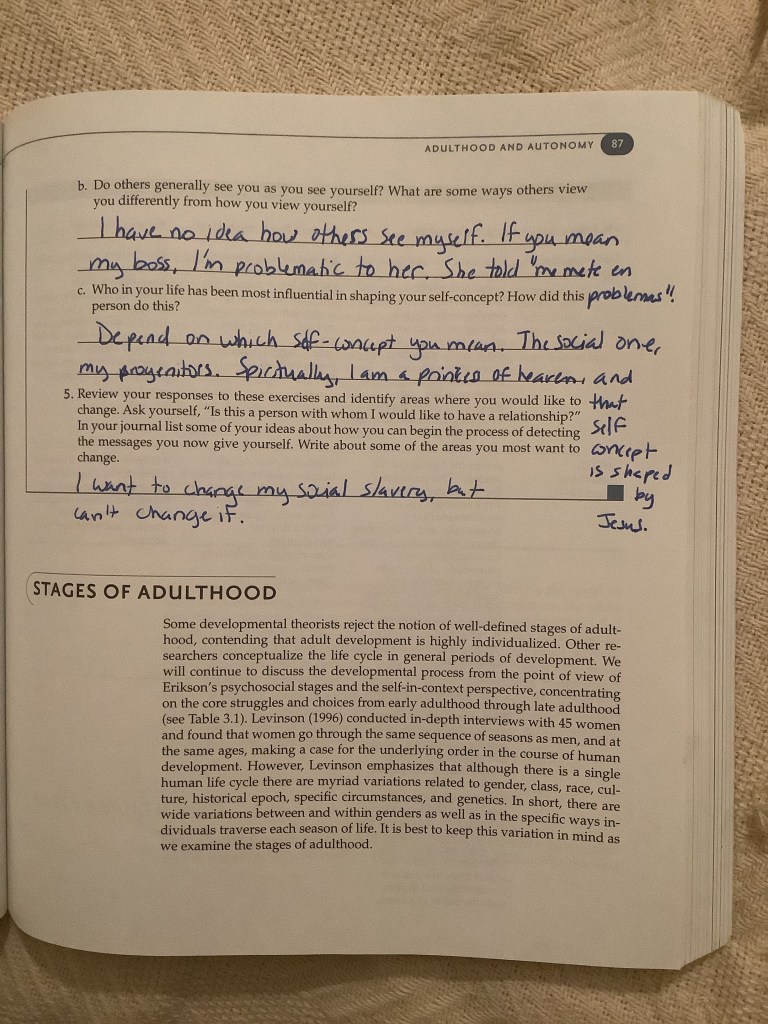 ADULTHOOD AND AUTONOMY 87
b. Do others generally see you as you see yourself? What are some ways others view
you differently from how you view yourself?
I have no idea how others see myself. If you mean
my boss, I'm problematic to her. She told "me mete en
problemas"!
c. Who in your life has been most influential in shaping your self-concept? How did this
person do this?
Depend on which self-concept you mean. The social one,
my progenitors. Spiritually, I am a princess of heaven, and
that
self
concept
is shaped
by
Jesus.
5. Review your responses to these exercises and identify areas where you would like to
change. Ask yourself, “Is this a person with whom I would like to have a relationship?”
In your journal list some of your ideas about how you can begin the process of detecting
the messages you now give yourself. Write about some of the areas you most want to
change.
I want to change my social slavery, but
can't change it.
STAGES OF ADULTHOOD
Some developmental theorists reject the notion of well-defined stages of adult-
hood, contending that adult development is highly individualized. Other re-
searchers conceptualize the life cycle in general periods of development. We
will continue to discuss the developmental process from the point of view of
Erikson's psychosocial stages and the self-in-context perspective, concentrating
on the core struggles and choices from early adulthood through late adulthood
(see Table 3.1). Levinson (1996) conducted in-depth interviews with 45 women
and found that women go through the same sequence of seasons as men, and at
the same ages, making a case for the underlying order in the course of human
development. However, Levinson emphasizes that although there is a single
human life cycle there are myriad variations related to gender, class, race, cul-
ture, historical epoch, specific circumstances, and genetics. In short, there are
wide variations between and within genders as well as in the specific ways in-
dividuals traverse each season of life. It is best to keep this variation in mind as
we examine the stages of adulthood.